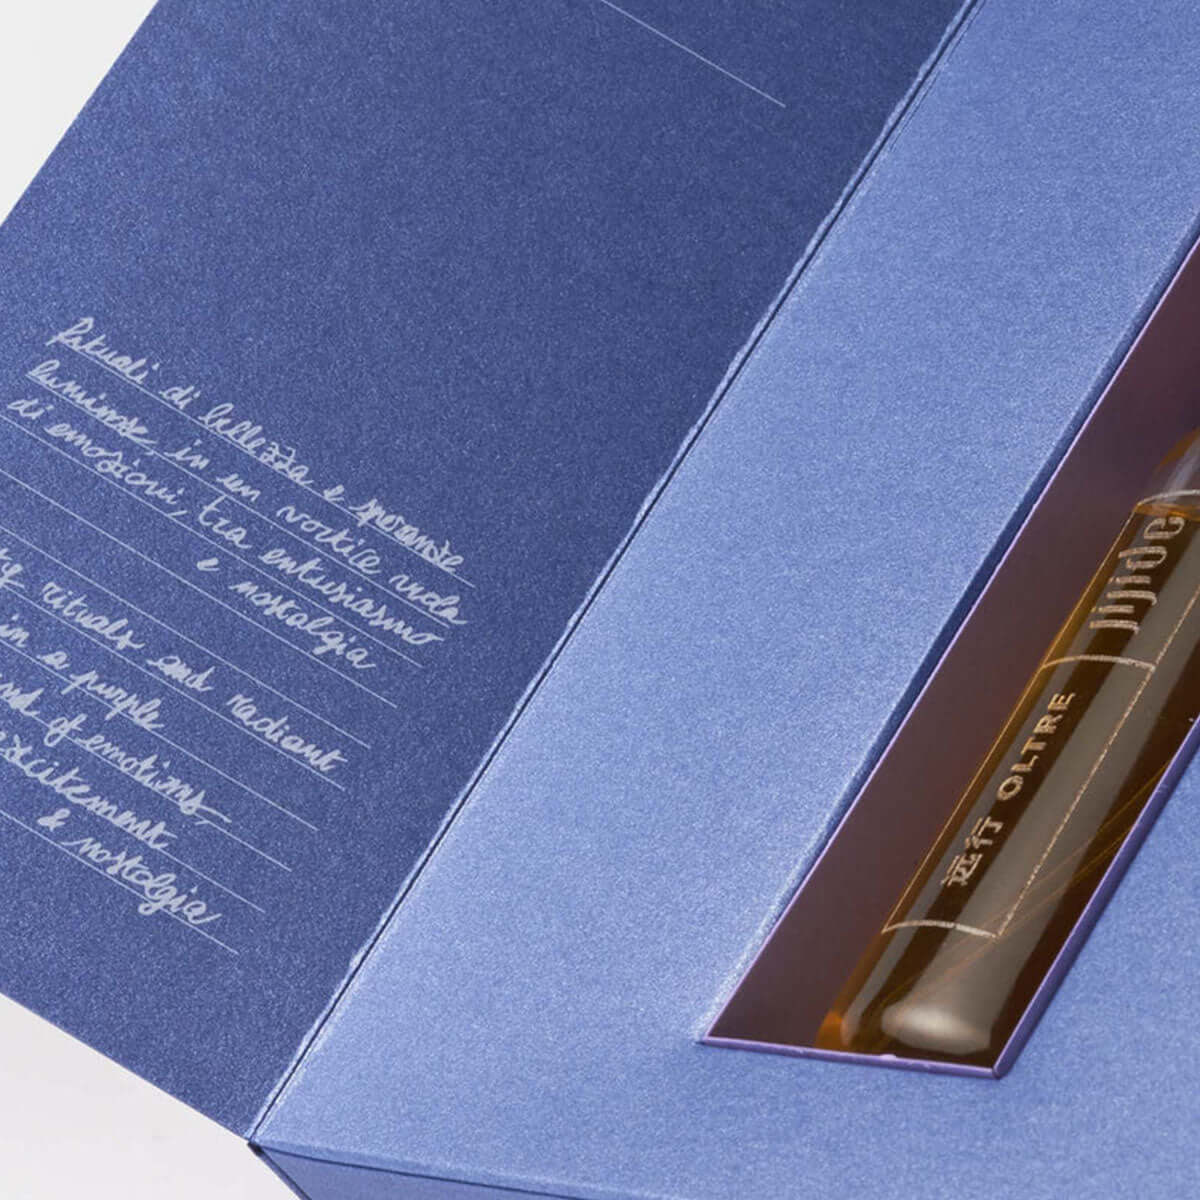 Rituali di bellezza e speranze
luminose, in un vortice viola
di emozioni, tra entusiasmo
e nostalgia
rituals and radiant
in a purple
of emotions,
excitement
& nostalgia
jijide
远行 OLTRE